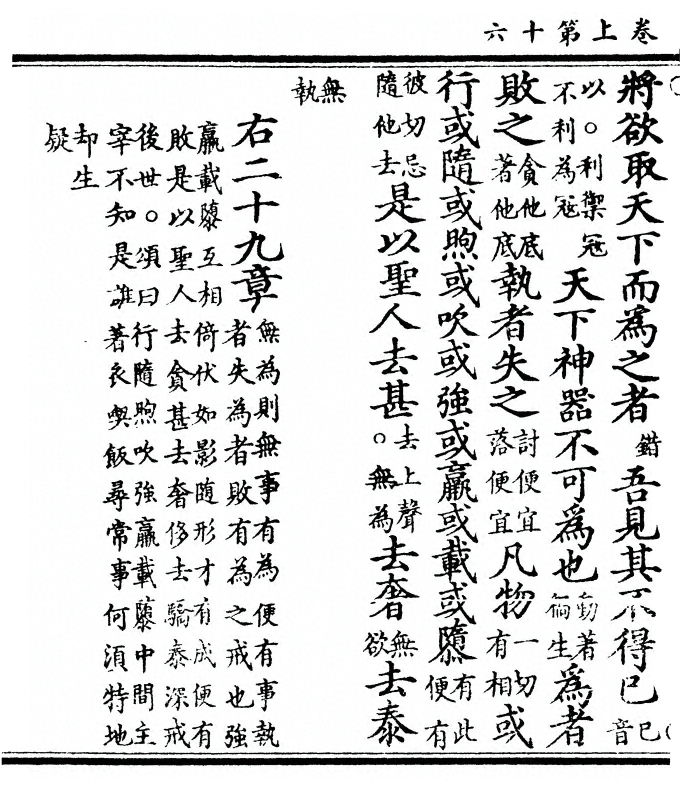 卷上第十六
將欲取天下而為之者錯吾見其不得已已音
以。利禦冠不利為冠天下神器不可為也動著生為者
敗之貪他底著他底執者失之討便宜落便宜凡物一切有相或
行或隨或煦或吹或強或羸或載或隳有此便有
彼切忌隨他去是以聖人去甚。去上聲無為去奢無欲去泰
無執
右二十九章無為則無事有為便有事執者失為者敗有為之戒也強
羸載隳互相倚伏如影隨形才有成便有敗是以聖人去貪甚去奢侈去驕泰深戒
後世。頌曰行隨煦吹強羸載隳中間主宰不知是誰著衣喫飯尋常事何須特地
却生疑